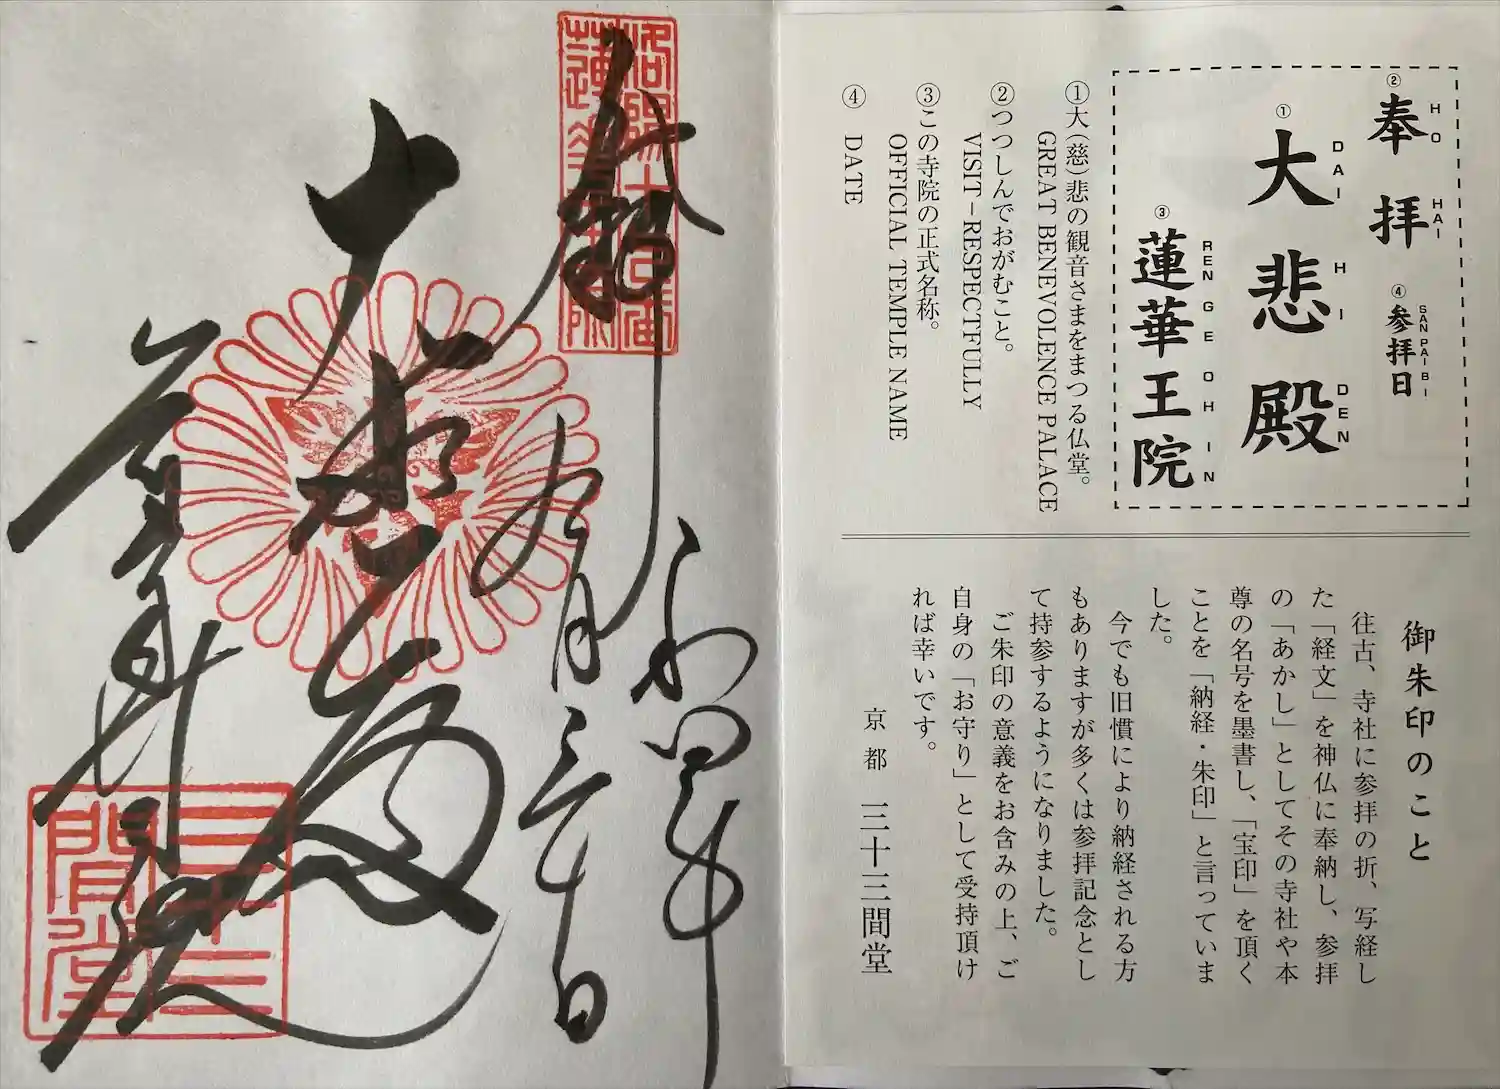 ②奉拝 ④参拝日
HO HAI SAN PAI BI
①大悲殿
DAI HI DEN
③蓮華王院
REN GE OH IN
①大(慈)悲の観音さまをまつる仏堂。
GREAT BENEVOLENCE PALACE
②つつしんでおがむこと。
VISIT−RESPECTFULLY
③この寺院の正式名称。
OFFICIAL TEMPLE NAME
④ DATE
御朱印のこと
往古、寺社に参拝の折、写経し
た「経文」を神仏に奉納し、参拝
の「あかし」としてその寺社や本
尊の名号を墨書し、「宝印」を頂く
ことを「納経・朱印」と言っていま
した。
今でも旧慣により納経される方
もありますが多くは参拝記念とし
て持参するようになりました。
ご朱印の意義をお含みの上、ご
自身の「お守り」として受持頂け
れば幸いです。
京都 三十三間堂
奉拝
令和四年
九月三十日
大悲殿
蓮華王院
三十三間堂